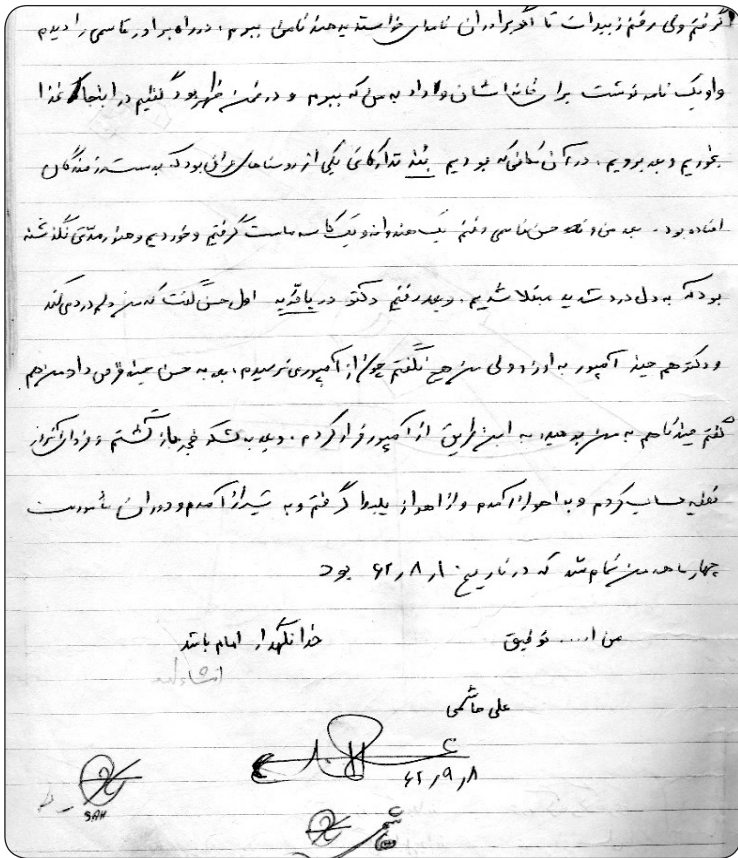 گرفتم ولی رفتم زبیدات تا اگر برادران نامه‌ای خواستند بدهند تا من ببرم. در راه برادر قاسمی را دیدم
و او یک نامه نوشت برای خانه‌اشان و داد به من که ببرم و در ضمن ظهر بود گفتیم در اینجا غذا
بخوریم و بعد برویم. در آن مکانی که بودیم بنه تدارکاتی یکی از روستاهای عراقی بود که بدست رزمندگان
افتاده بود. بعد من و حسن قاسمی رفتیم یک هندوانه و یک کاسه ماست گرفتیم و خوردیم و هنوز مدتی نگذشته
بود که به دل درد شدید مبتلا شدیم. و بعد رفتیم دکتر در اول حسن گفت که من دلم درد می‌کند
و دکتر هم چند آمپول به او زد ولی من هیچ نگفتم چون از آمپول می‌ترسیدم، بعد به حسن چند قرص داد من هم
گفتم چند تا هم به من بدهید، به این طریق از آمپول فرار کردم. و بعد به لشکر فجر بازگشتم و فردای آنروز
تصفیه حساب کردم و به اهواز آمدم و از اهواز بلیط گرفتم و به شیراز آمدم و دوران مأموریت
چهار ماهه من تمام شد که در تاریخ ۱۰ر۸ر۶۲ بود
من ا... توفیق
خدا نگهدار امام باشد
انشاءالله
علی هاشمی
۶۲ر۹ر۸
SAH